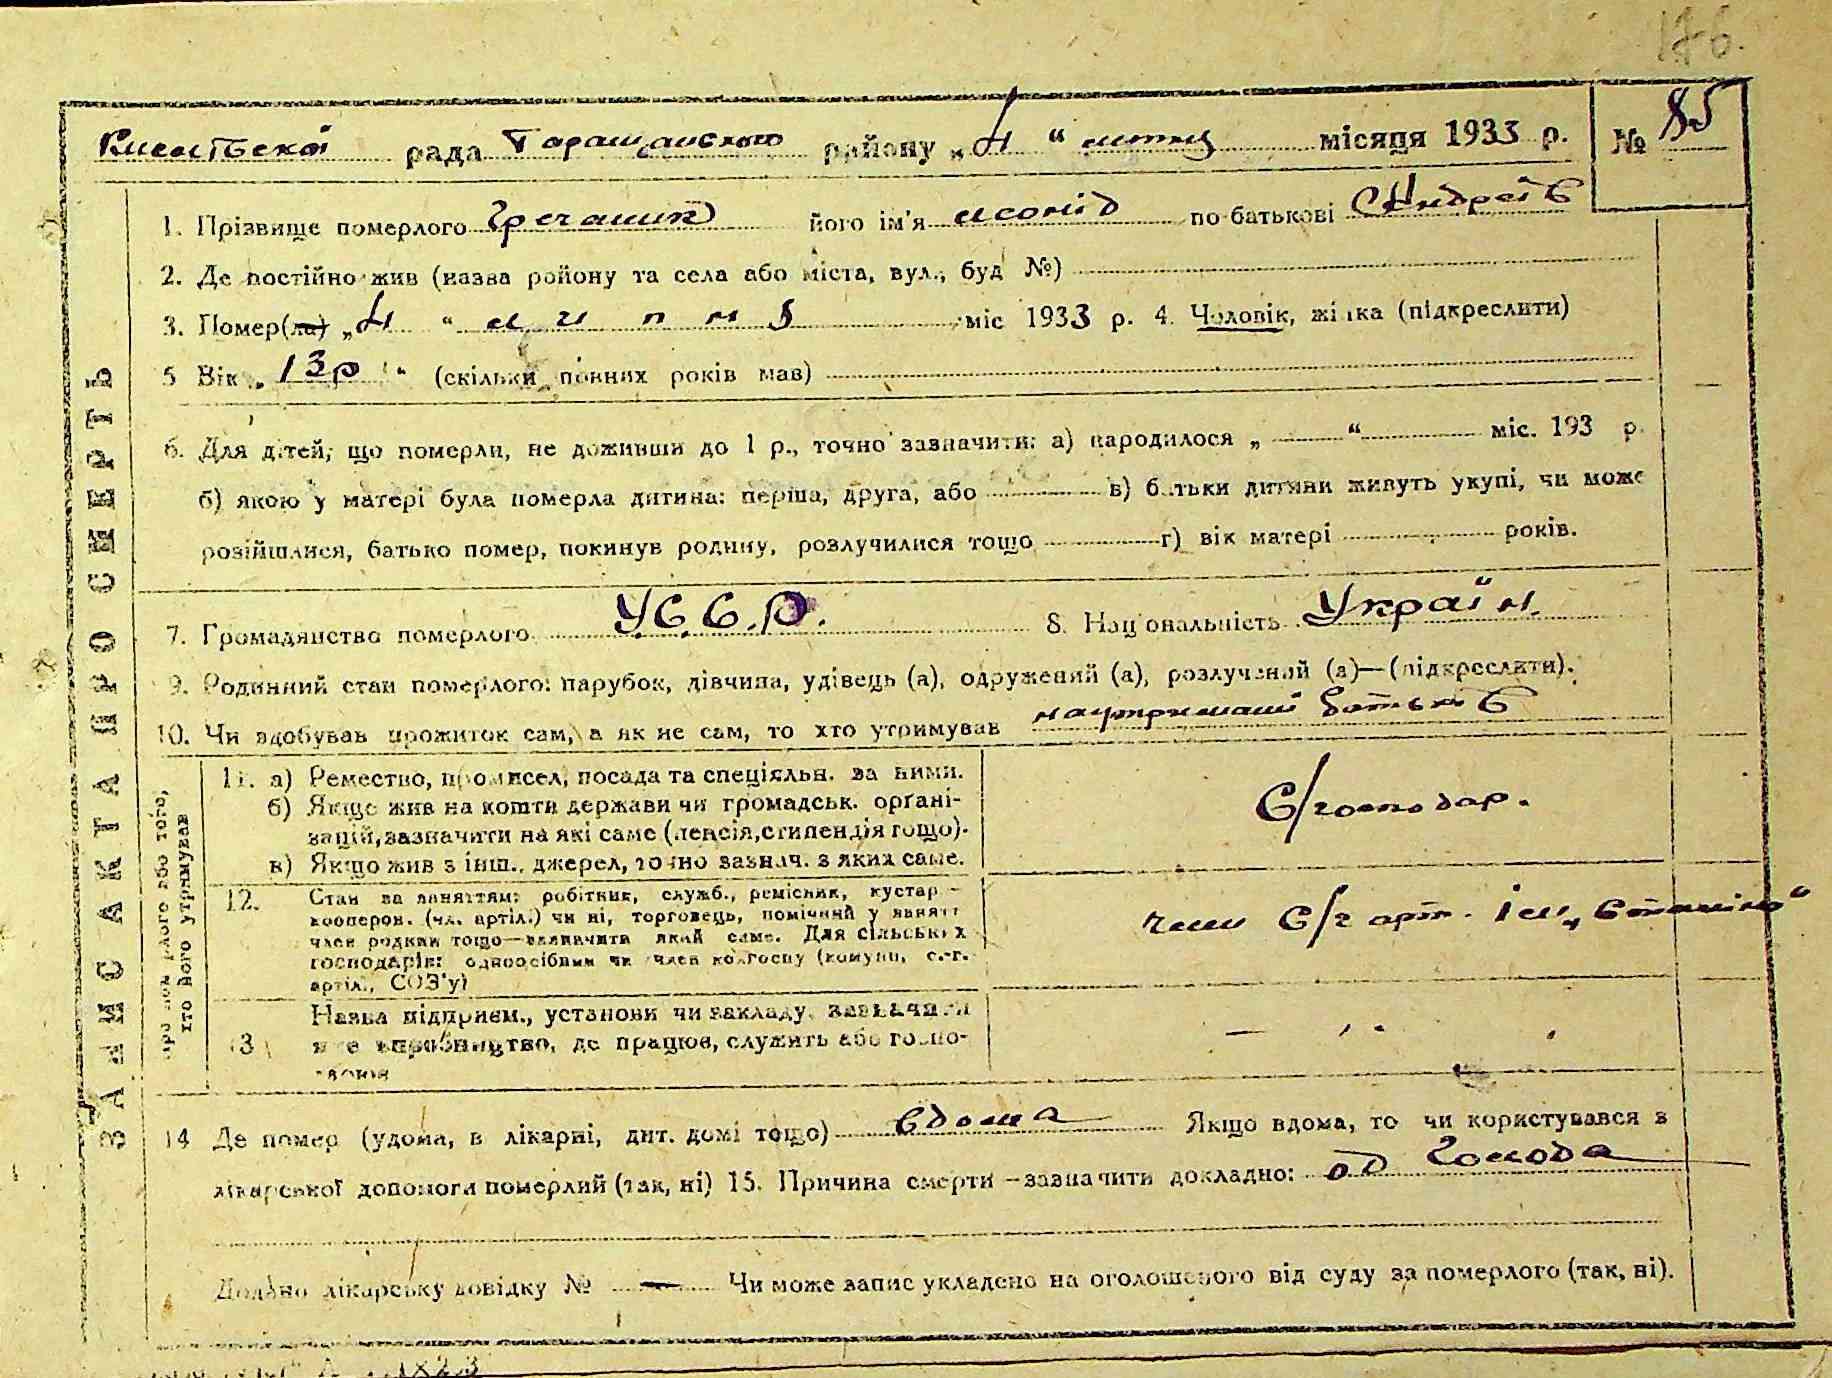 176.
рада Таращанського району „ “ місяця 1933 р. № 85
ЗАПИС АКТА ПРО СМЕРТЬ
1. Прізвище померлого Гречаник його ім'я Леонід по батькові Андреїв
2. Де постійно жив (назва району та села або міста, вул., буд №)
3. Помер(ла) „ “ липня міс 1933 р. 4. Чоловік, жінка (підкреслити)
5 Вік „ 13р “ (скільки повних років мав)
6. Для дітей, що померли, не доживши до 1 р., точно зазначити: а) народилося „ “ міс. 193 р.
б) якою у матері була померла дитина: перша, друга, або в) батьки дитини живуть укупі, чи може
розійшлися, батько помер, покинув родину, розлучилися тощо г) вік матері років.
7. Громадянство померлого У.С.С.Р. 8. Національність Україн.
9. Родинний стан померлого: парубок, дівчина, удівець (а), одружений (а), розлучений (а)—(підкреслити).
10. Чи здобував прожиток сам, а як не сам, то хто утримував на утриманні батьків
Про померлого або того, хто його утримував
11. а) Ремество, промисел, посада та спеціяльн. за ними.
б) Якщо жив на кошти держави чи громадськ. органі-
зацій, зазначити на які саме (пенсія, стипендія тощо).
в) Якщо жив з інш. джерел, точно зазнач. з яких саме.
С/господар.
12. Стан за заняттям: робітник, служб., ремісник, кустар -
кооперов. (чл. артіл.) чи ні, торговець, помічний у занятт
член родини тощо—зазначити який саме. Для сільських
господарів: одноосібник чи член колгоспу (комуни, с.-г.
артіл., СОЗ'у)
член С/г арт. Ім „Сталіна“
13 Назва підприєм., установи чи закладу, зазначити
яке виробництво, де працює, служить або госпо-
дарює
14 Де помер (удома, в лікарні, дит. домі тощо) вдома Якщо вдома, то чи користувався з
лікарської допомоги померлий (так, ні) 15. Причина смерти – зазначити докладно: од голода
Додано лікарську довідку № — Чи може запис укладено на оголошеного від суду за померлого (так, ні).